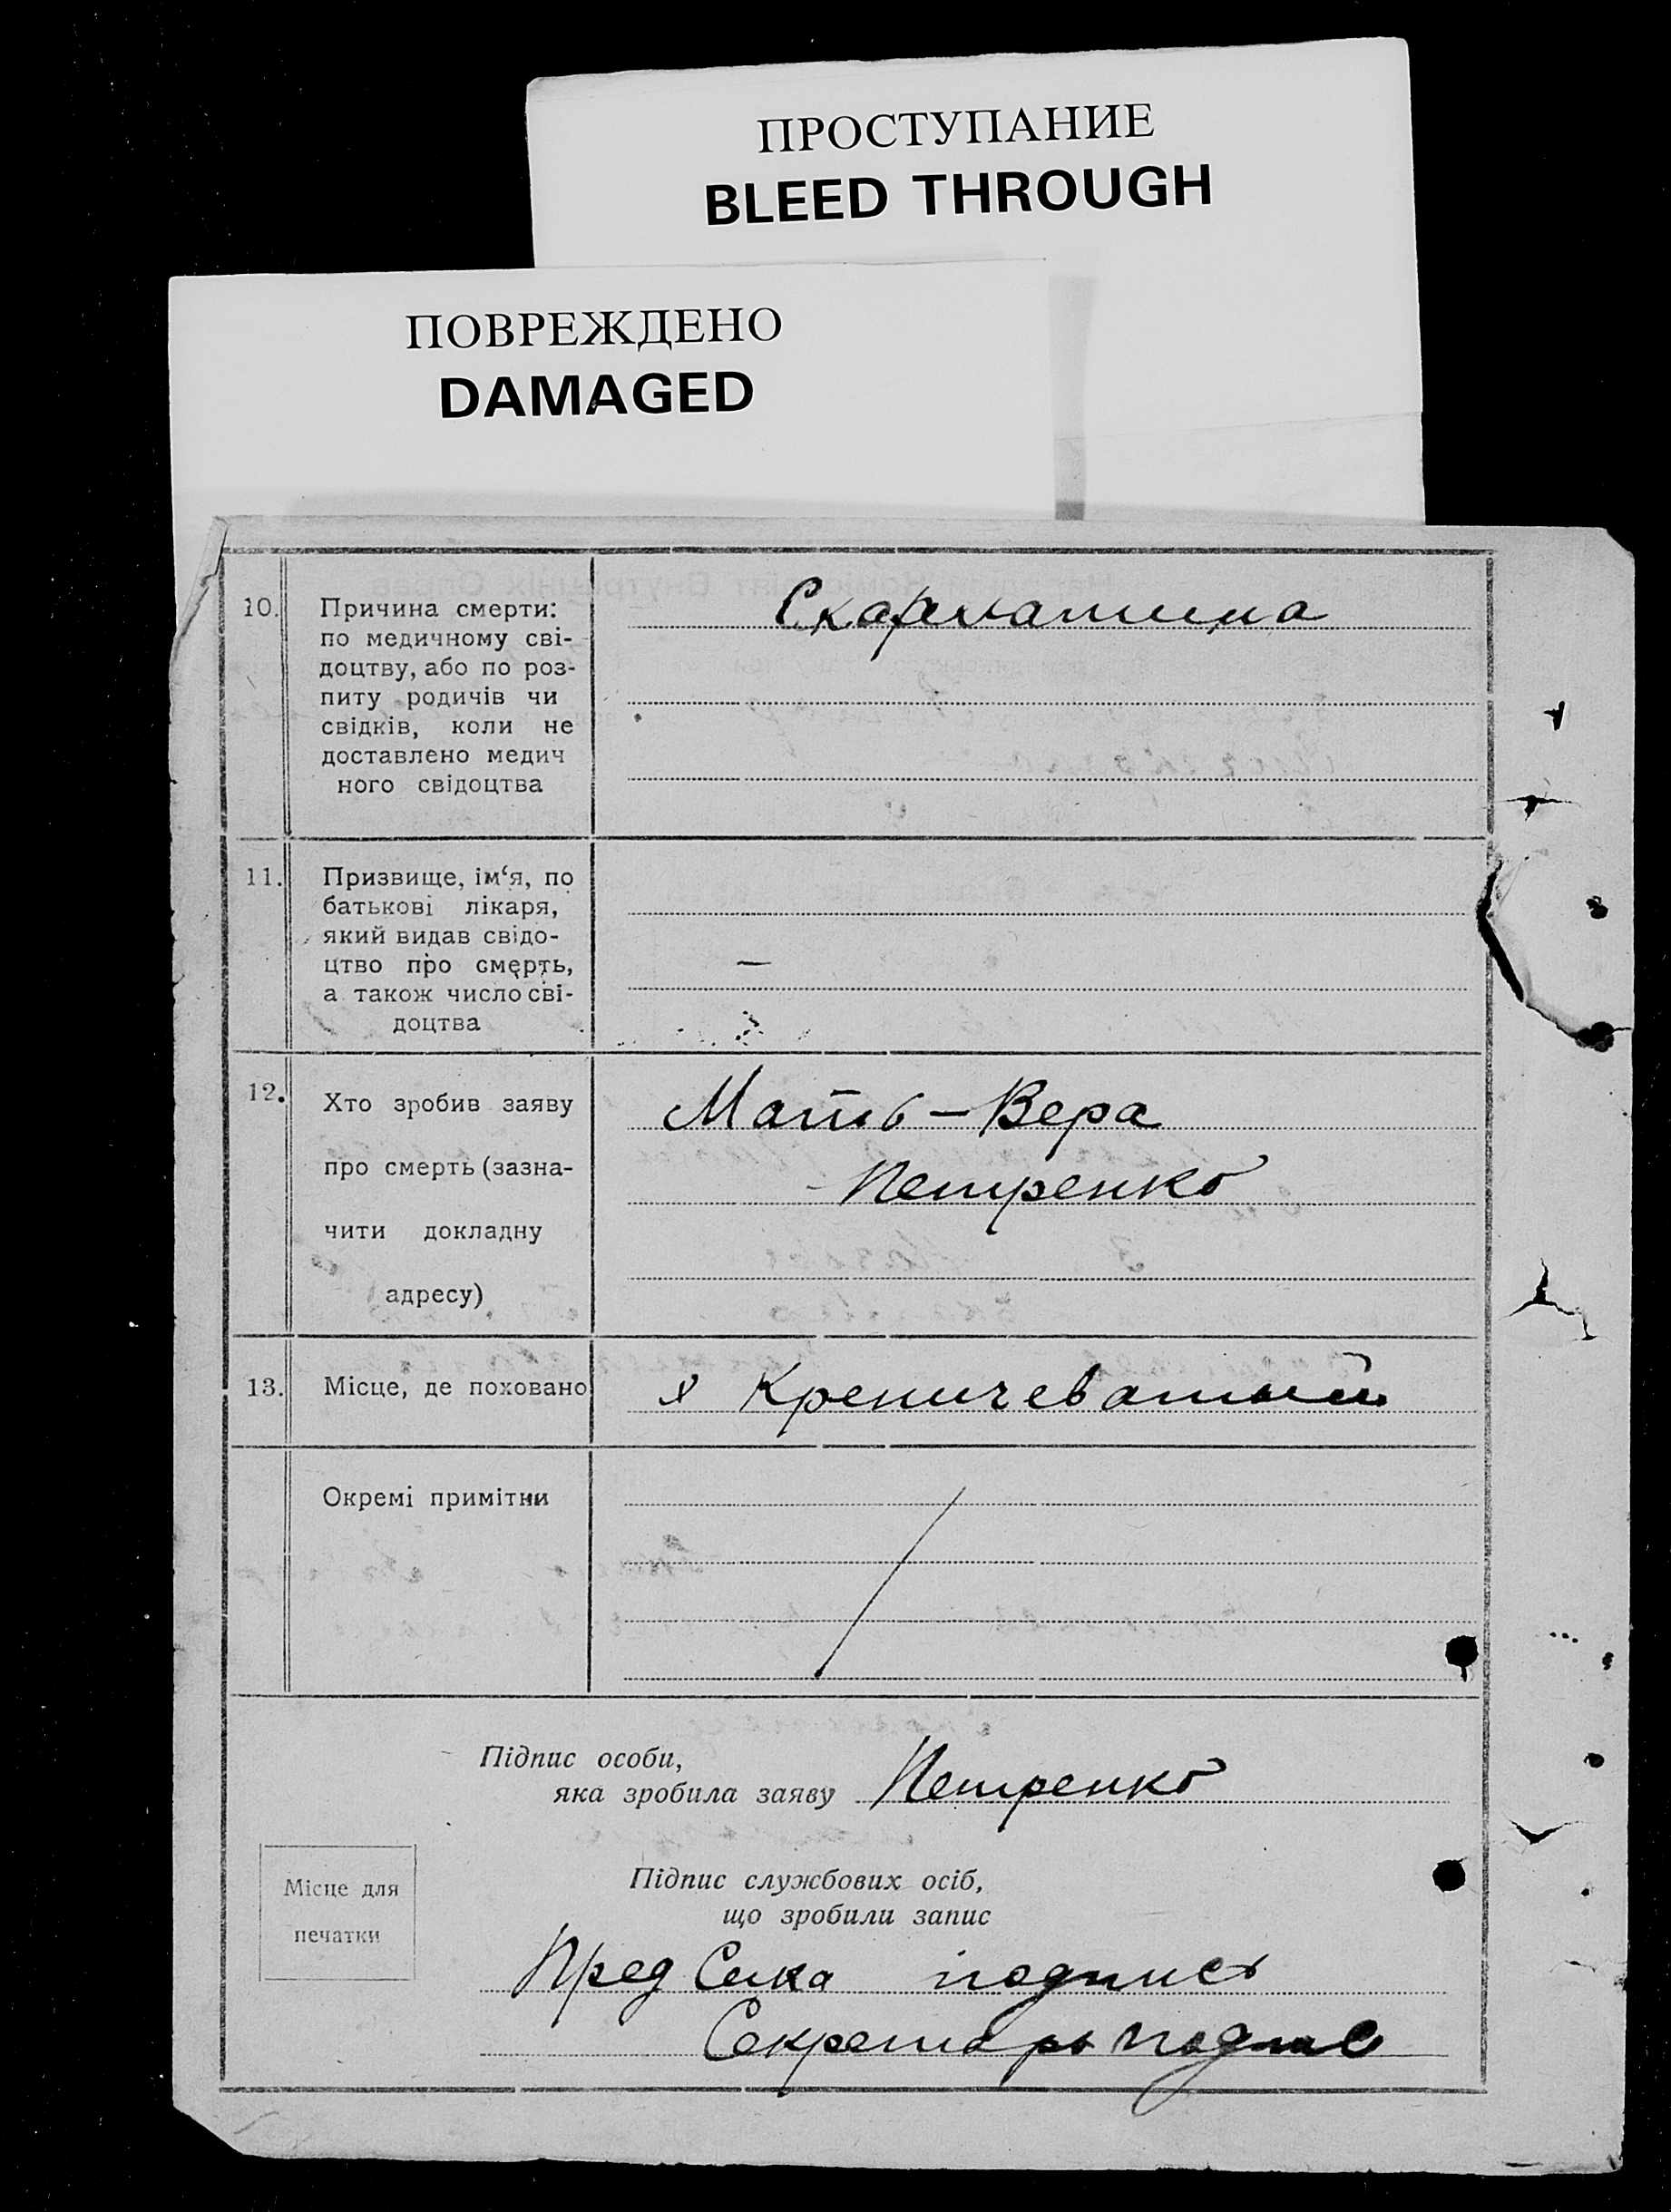 ПРОСТУПАНИЕ
BLEED THROUGH
ПОВРЕЖДЕНО
DAMAGED
10. Причина смерти: Скарлатина
по медичному сві-
доцтву, або по роз-
питу родичів чи
свідків, коли не
доставлено медич
ного свідоцтва
11. Призвище, ім‘я, по
батькові лікаря,
який видав свідо-
цтво про смерть, —
а також число сві-
доцтва
12. Хто зробив заяву Мать – Вера
про смерть (зазна- Петренко
чити докладну
адресу)
13. Місце, де поховано х Креничеватый
Окремі примітки
Підпис особи,
яка зробила заяву Петренко
Місце для
печатки
Підпис службових осіб,
що зробили запис
Пред Сика подпись
Секретарь